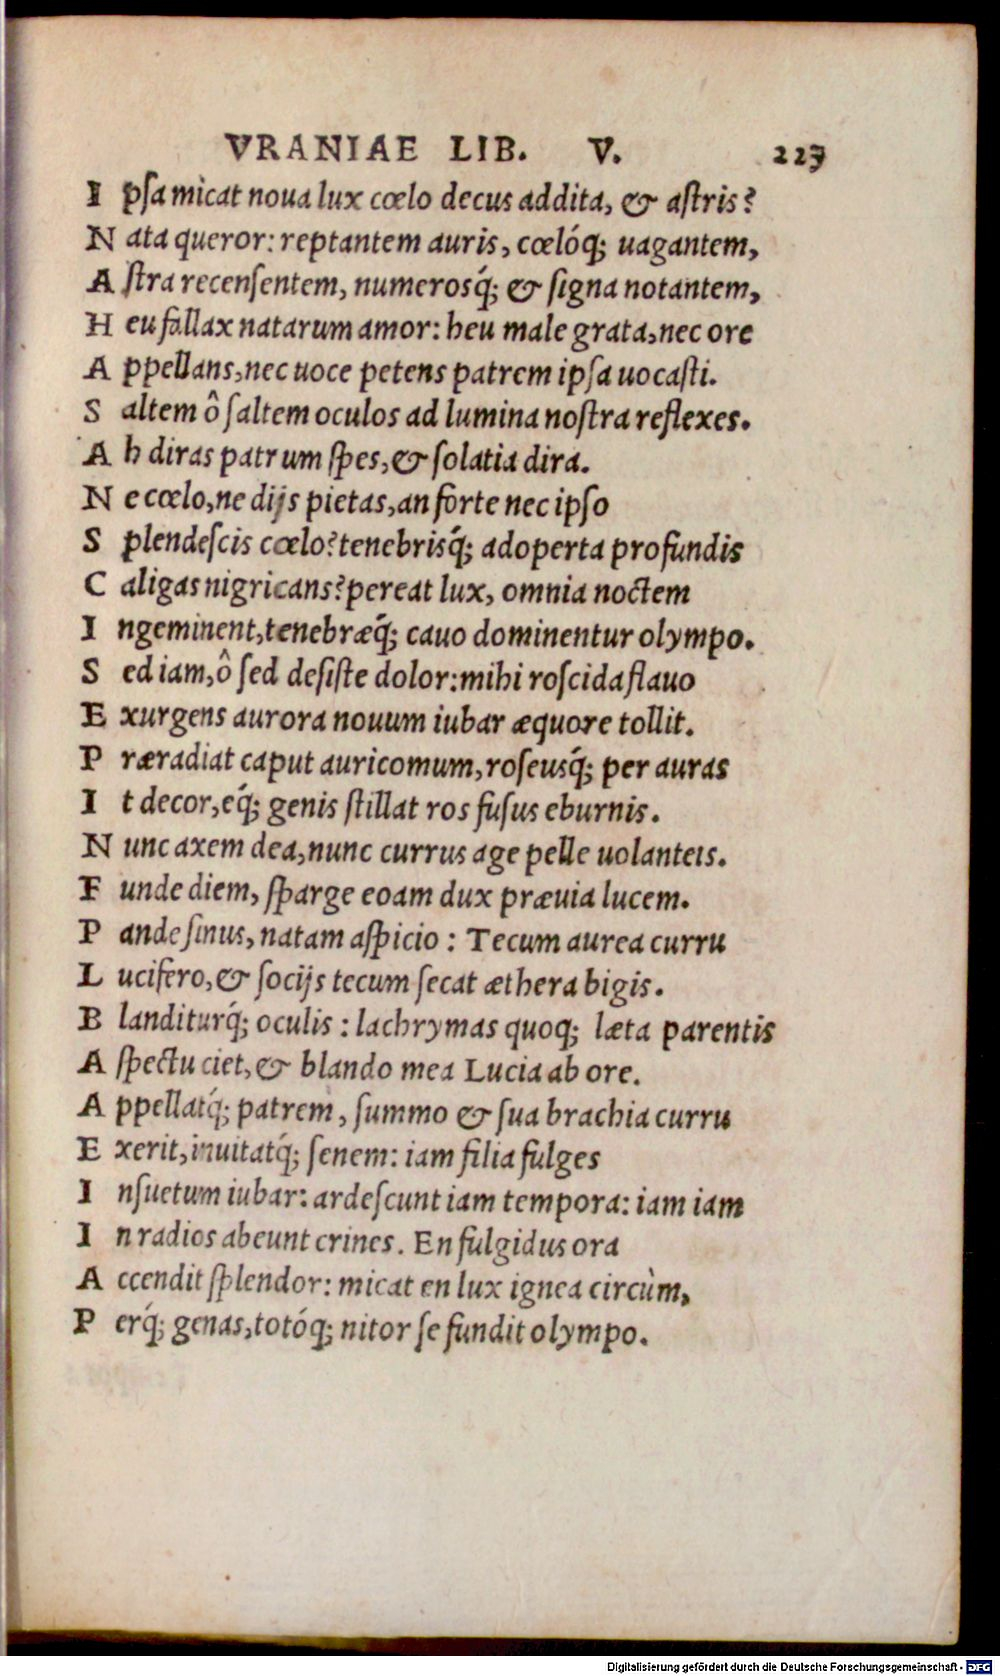 VRANIAE LIB. V. 223
I pſa micat noua lux cœlo decus addita, & aſtris?
N ata queror: reptantem auris, cœlóq́; uagantem,
A ſtra recenſentem, numerosq́; & ſigna notantem,
H eu fallax natarum amor: heu male grata, nec ore
A ppellans, nec uoce petens patrem ipſa uocaſti.
S altem ô ſaltem oculos ad lumina noſtra reflexes.
A h diras patrum ſpes, & ſolatia dira.
N e cœlo, ne dijs pietas, an forte nec ipſo
S plendeſcis cœlo? tenebrisq́; adoperta profundis
C aligas nigricans? pereat lux, omnia noctem
I ngeminent, tenebræq́; cauo dominentur olympo.
S ed iam, ô ſed deſiſte dolor: mihi roſcida flauo
E xurgens aurora nouum iubar æquore tollit.
P ræradiat caput auricomum, roſeusq́; per auras
I t decor, eq́; genis ſtillat ros fuſus eburnis.
N unc axem dea, nunc currus age pelle uolanteis.
F unde diem, ſparge eoam dux præuia lucem.
P ande ſinus, natam aſpicio : Tecum aurea curru
L ucifero, & ſocijs tecum ſecat æthera bigis.
B landiturq́; oculis : lachrymas quoq; læta parentis
A ſpectu ciet, & blando mea Lucia ab ore.
A ppellatq́; patrem, ſummo & ſua brachia curru
E xerit, inuitatq́; ſenem: iam filia fulges
I nſuetum iubar: ardeſcunt iam tempora: iam iam
I n radios abeunt crines. En fulgidus ora
A ccendit ſplendor: micat en lux ignea circùm,
P erq́; genas, totóq; nitor ſe fundit olympo.
Digitalisierung gefördert durch die Deutsche Forschungsgemeinschaft - DFG